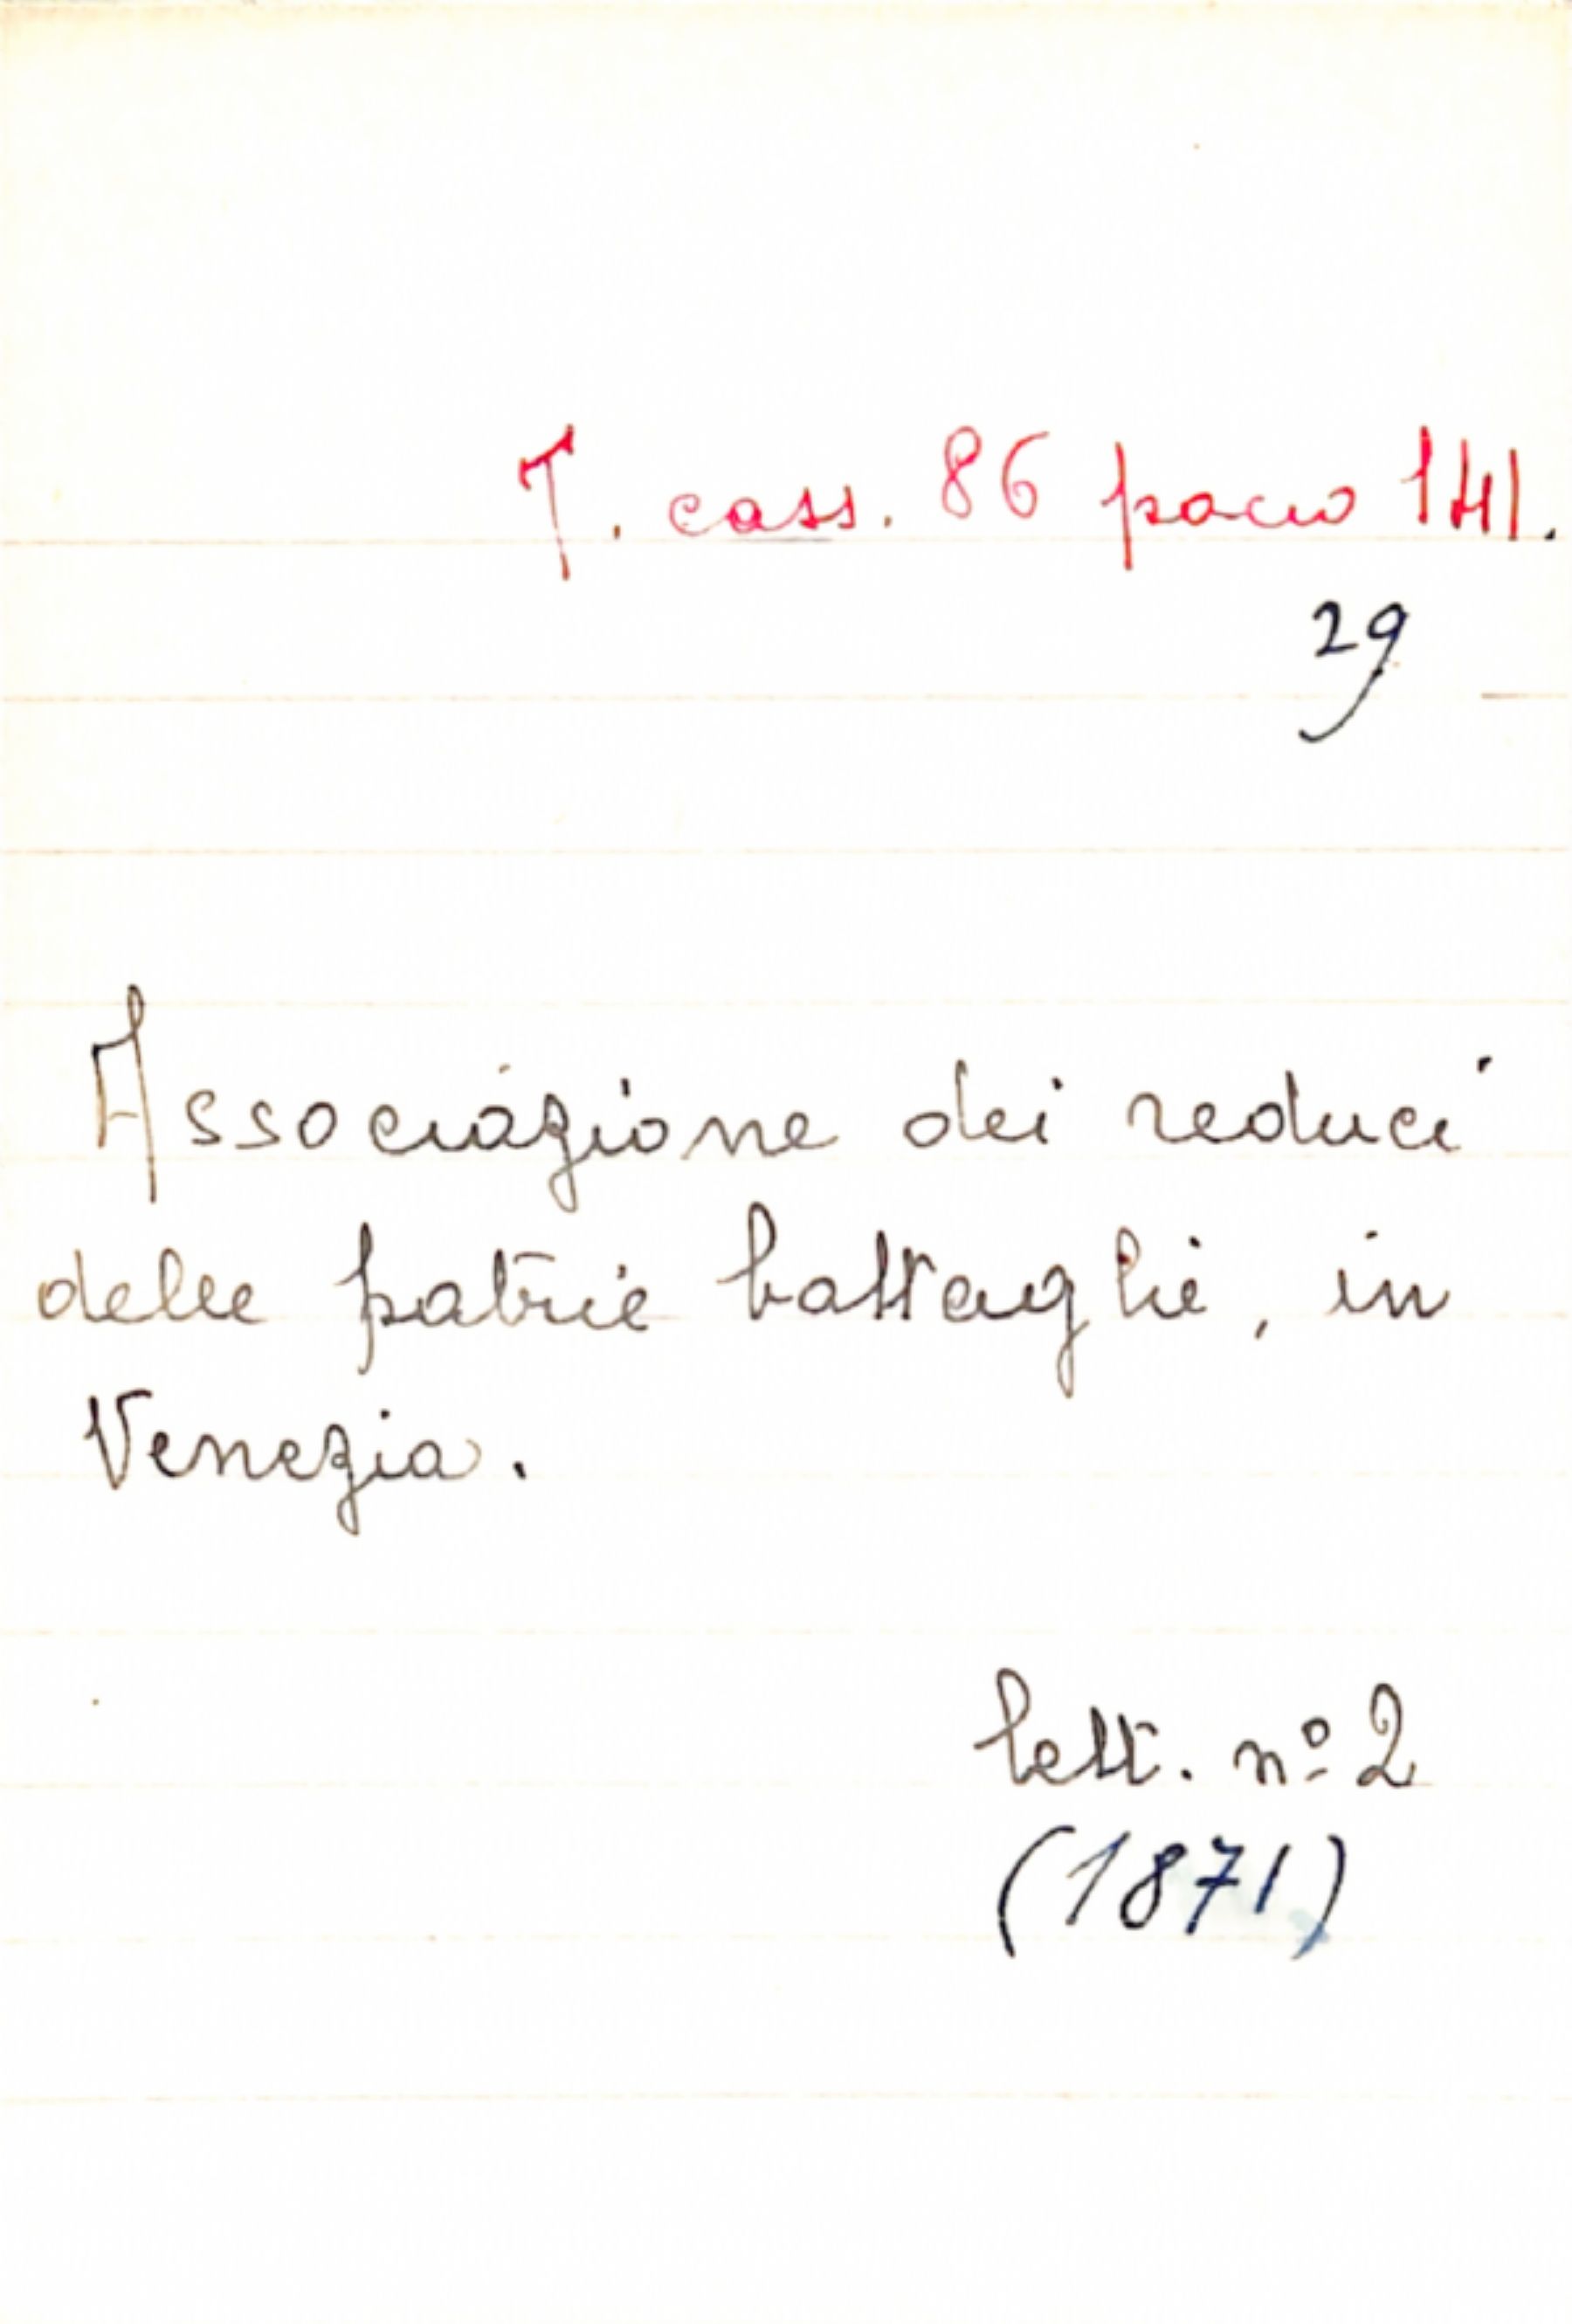 T. cass. 86 pacco 141.
29
Associazione dei reduci
delle patrie battaglie, in
Venezia.
lett. nº 2
(1871)